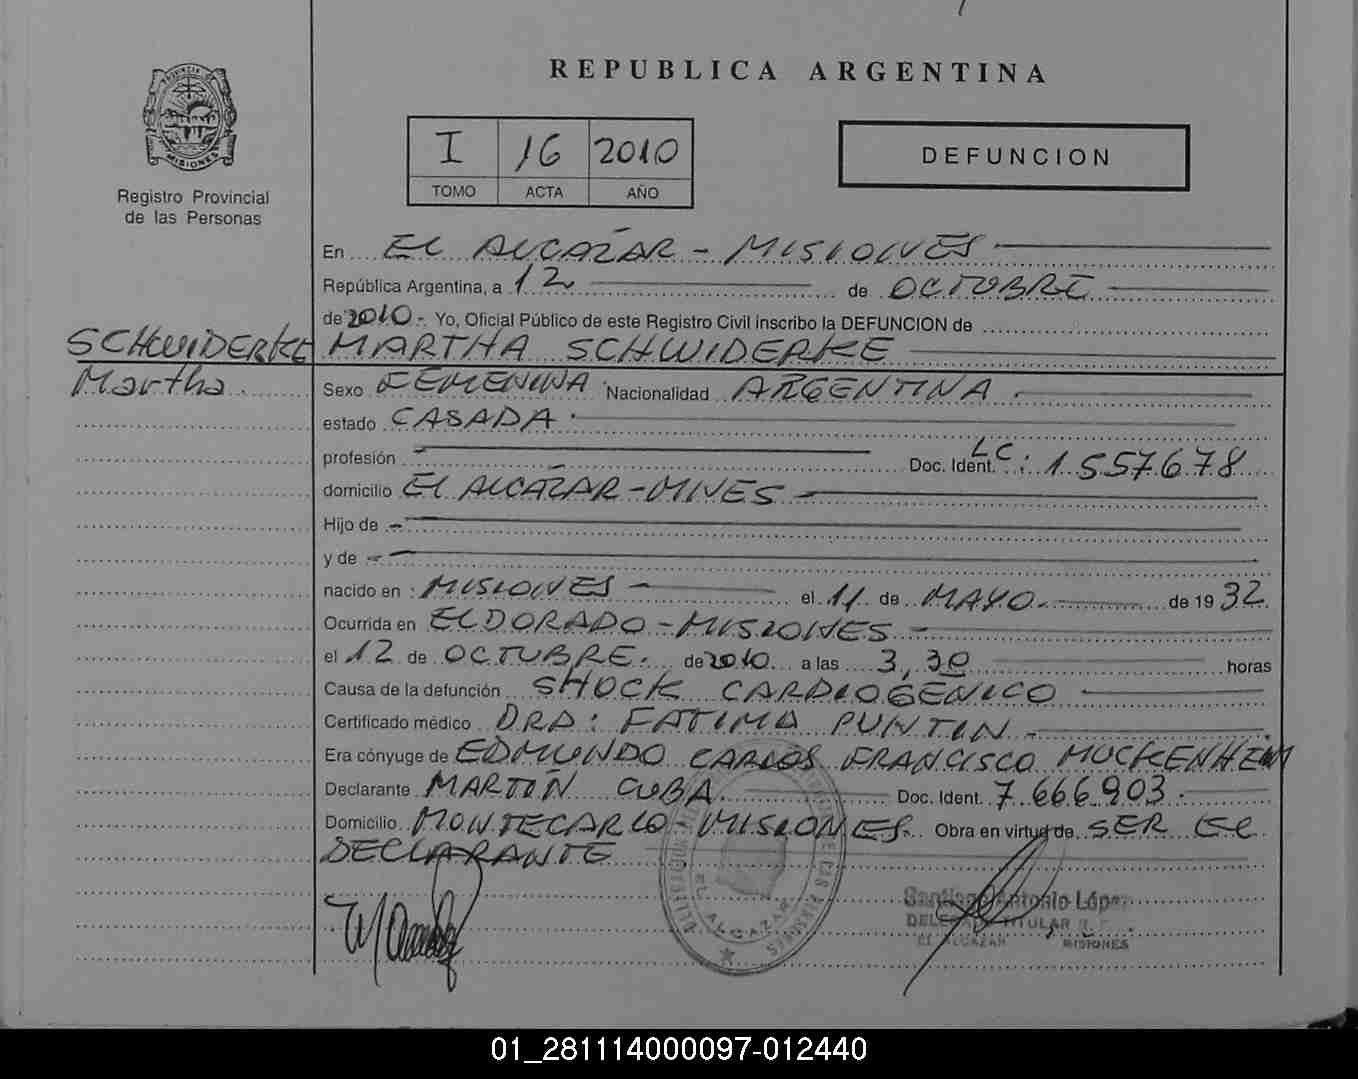 REPUBLICA ARGENTINA
PROVINCIA DE
MISIONES
Registro Provincial
de las Personas
I 16 2010
TOMO ACTA AÑO
DEFUNCION
En EL ALCAZAR - MISIONES
República Argentina, a 12 de OCTUBRE
de 2010.- Yo, Oficial Público de este Registro Civil inscribo la DEFUNCION de
SCHWIDERKE MARTHA SCHWIDERKE
Martha
Sexo FEMENINA Nacionalidad ARGENTINA
estado CASADA
profesión - Doc. Ident. LC: 1.557.678
domicilio EL ALCAZAR - MNES -
Hijo de -
y de -
nacido en : MISIONES - el 11 de MAYO. de 1932
Ocurrida en ELDORADO - MISIONES -
el 12 de OCTUBRE. de 2010 a las 3,30 horas
Causa de la defunción SHOCK CARDIOGÉNICO
Certificado médico DRA: FATIMA PUNTIN -
Era cónyuge de EDMUNDO CARLOS FRANCISCO MUCKENHEIM
Declarante MARTÍN CUBA Doc. Ident. 7.666.903.
Domicilio MONTECARLO - MISIONES. Obra en virtud de SER EL
DECLARANTE
EL ALCAZAR
Santiago Antonio López
DELEGADO TITULAR R. P.
EL ALCAZAR MISIONES
01_281114000097-012440